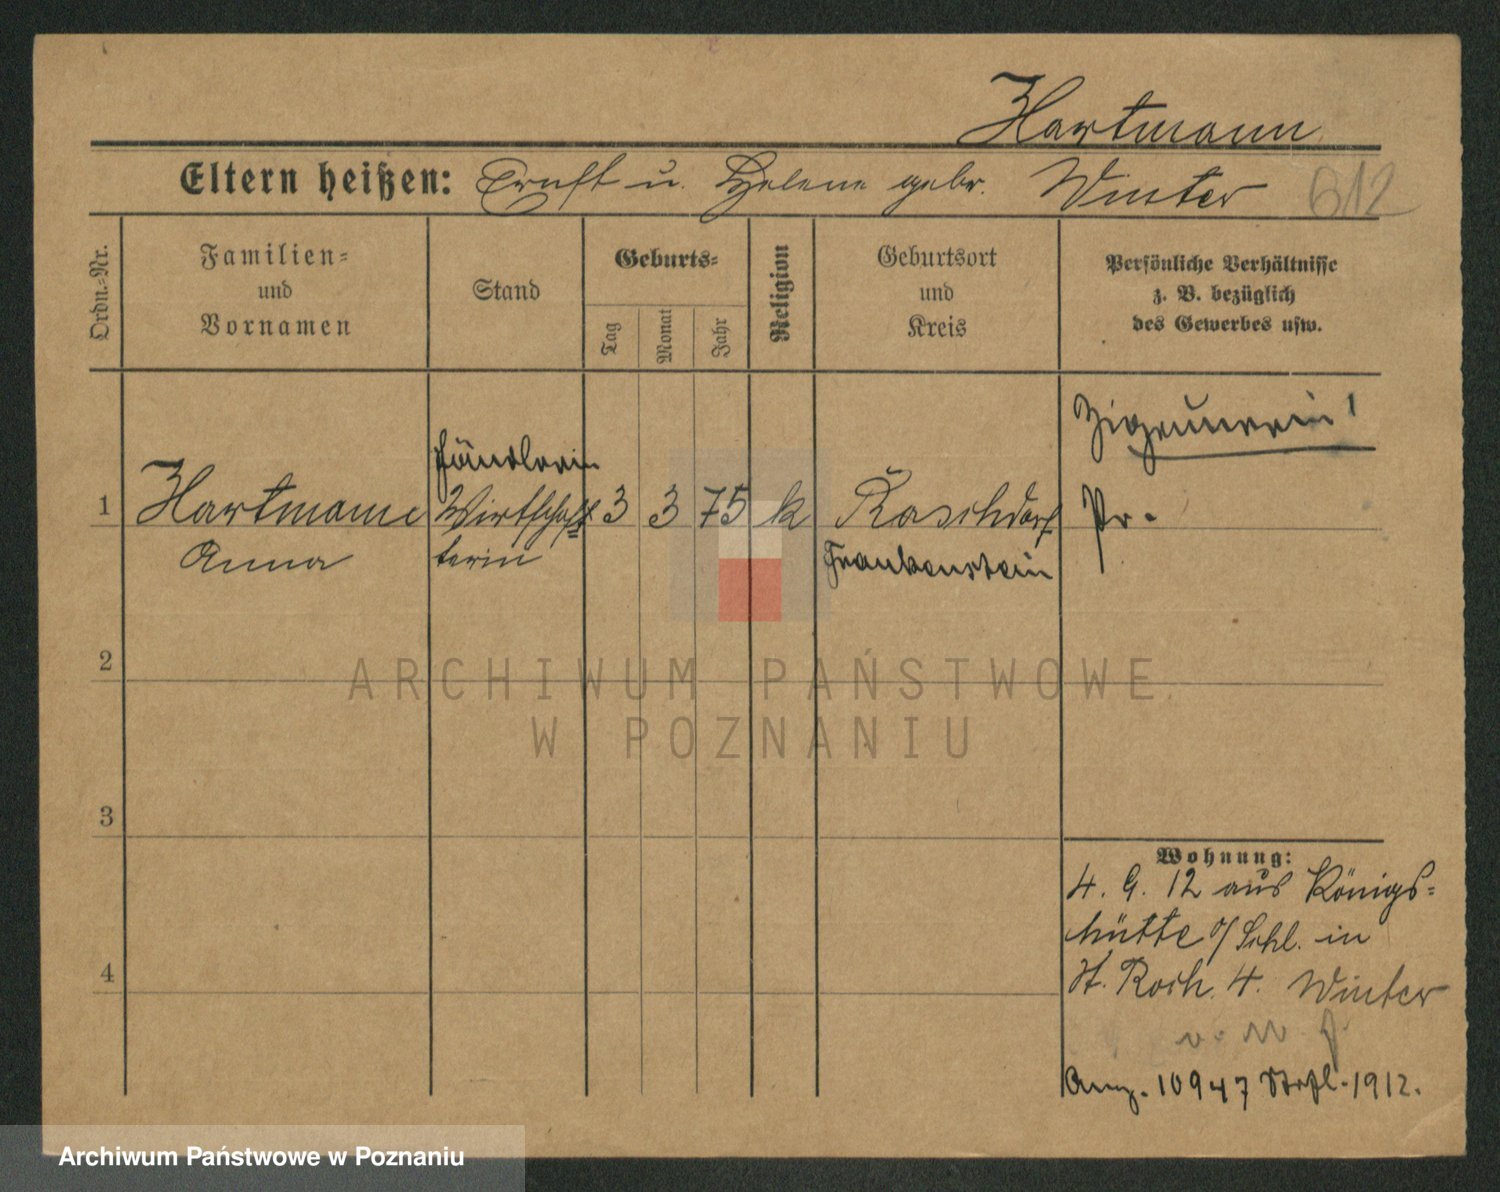 Hartmann
Eltern heißen: Ernst u. Helene gebr. Winter 612
Ordn.-Nr.
Familien-
und
Vornamen
Stand
Geburts-
Tag
Monat
Jahr
Religion
Geburtsort
und
Kreis
Persönliche Verhältnisse
z. B. bezüglich
des Gewerbes usw.
Zigeunerin!
Händlerin
1 Hartmann Wirtschaf= 3 3 75 k Raschdorf Pr.
Anna terin Frankenstein
2
ARCHIWUM PAŃSTWOWE
W POZNANIU
3
Wohnung:
4. 9. 12 aus Königs=
hütte o/Schl. in
4
St. Roch. 4. Winter
Anz. 10947 1912.
Archiwum Państwowe w Poznaniu